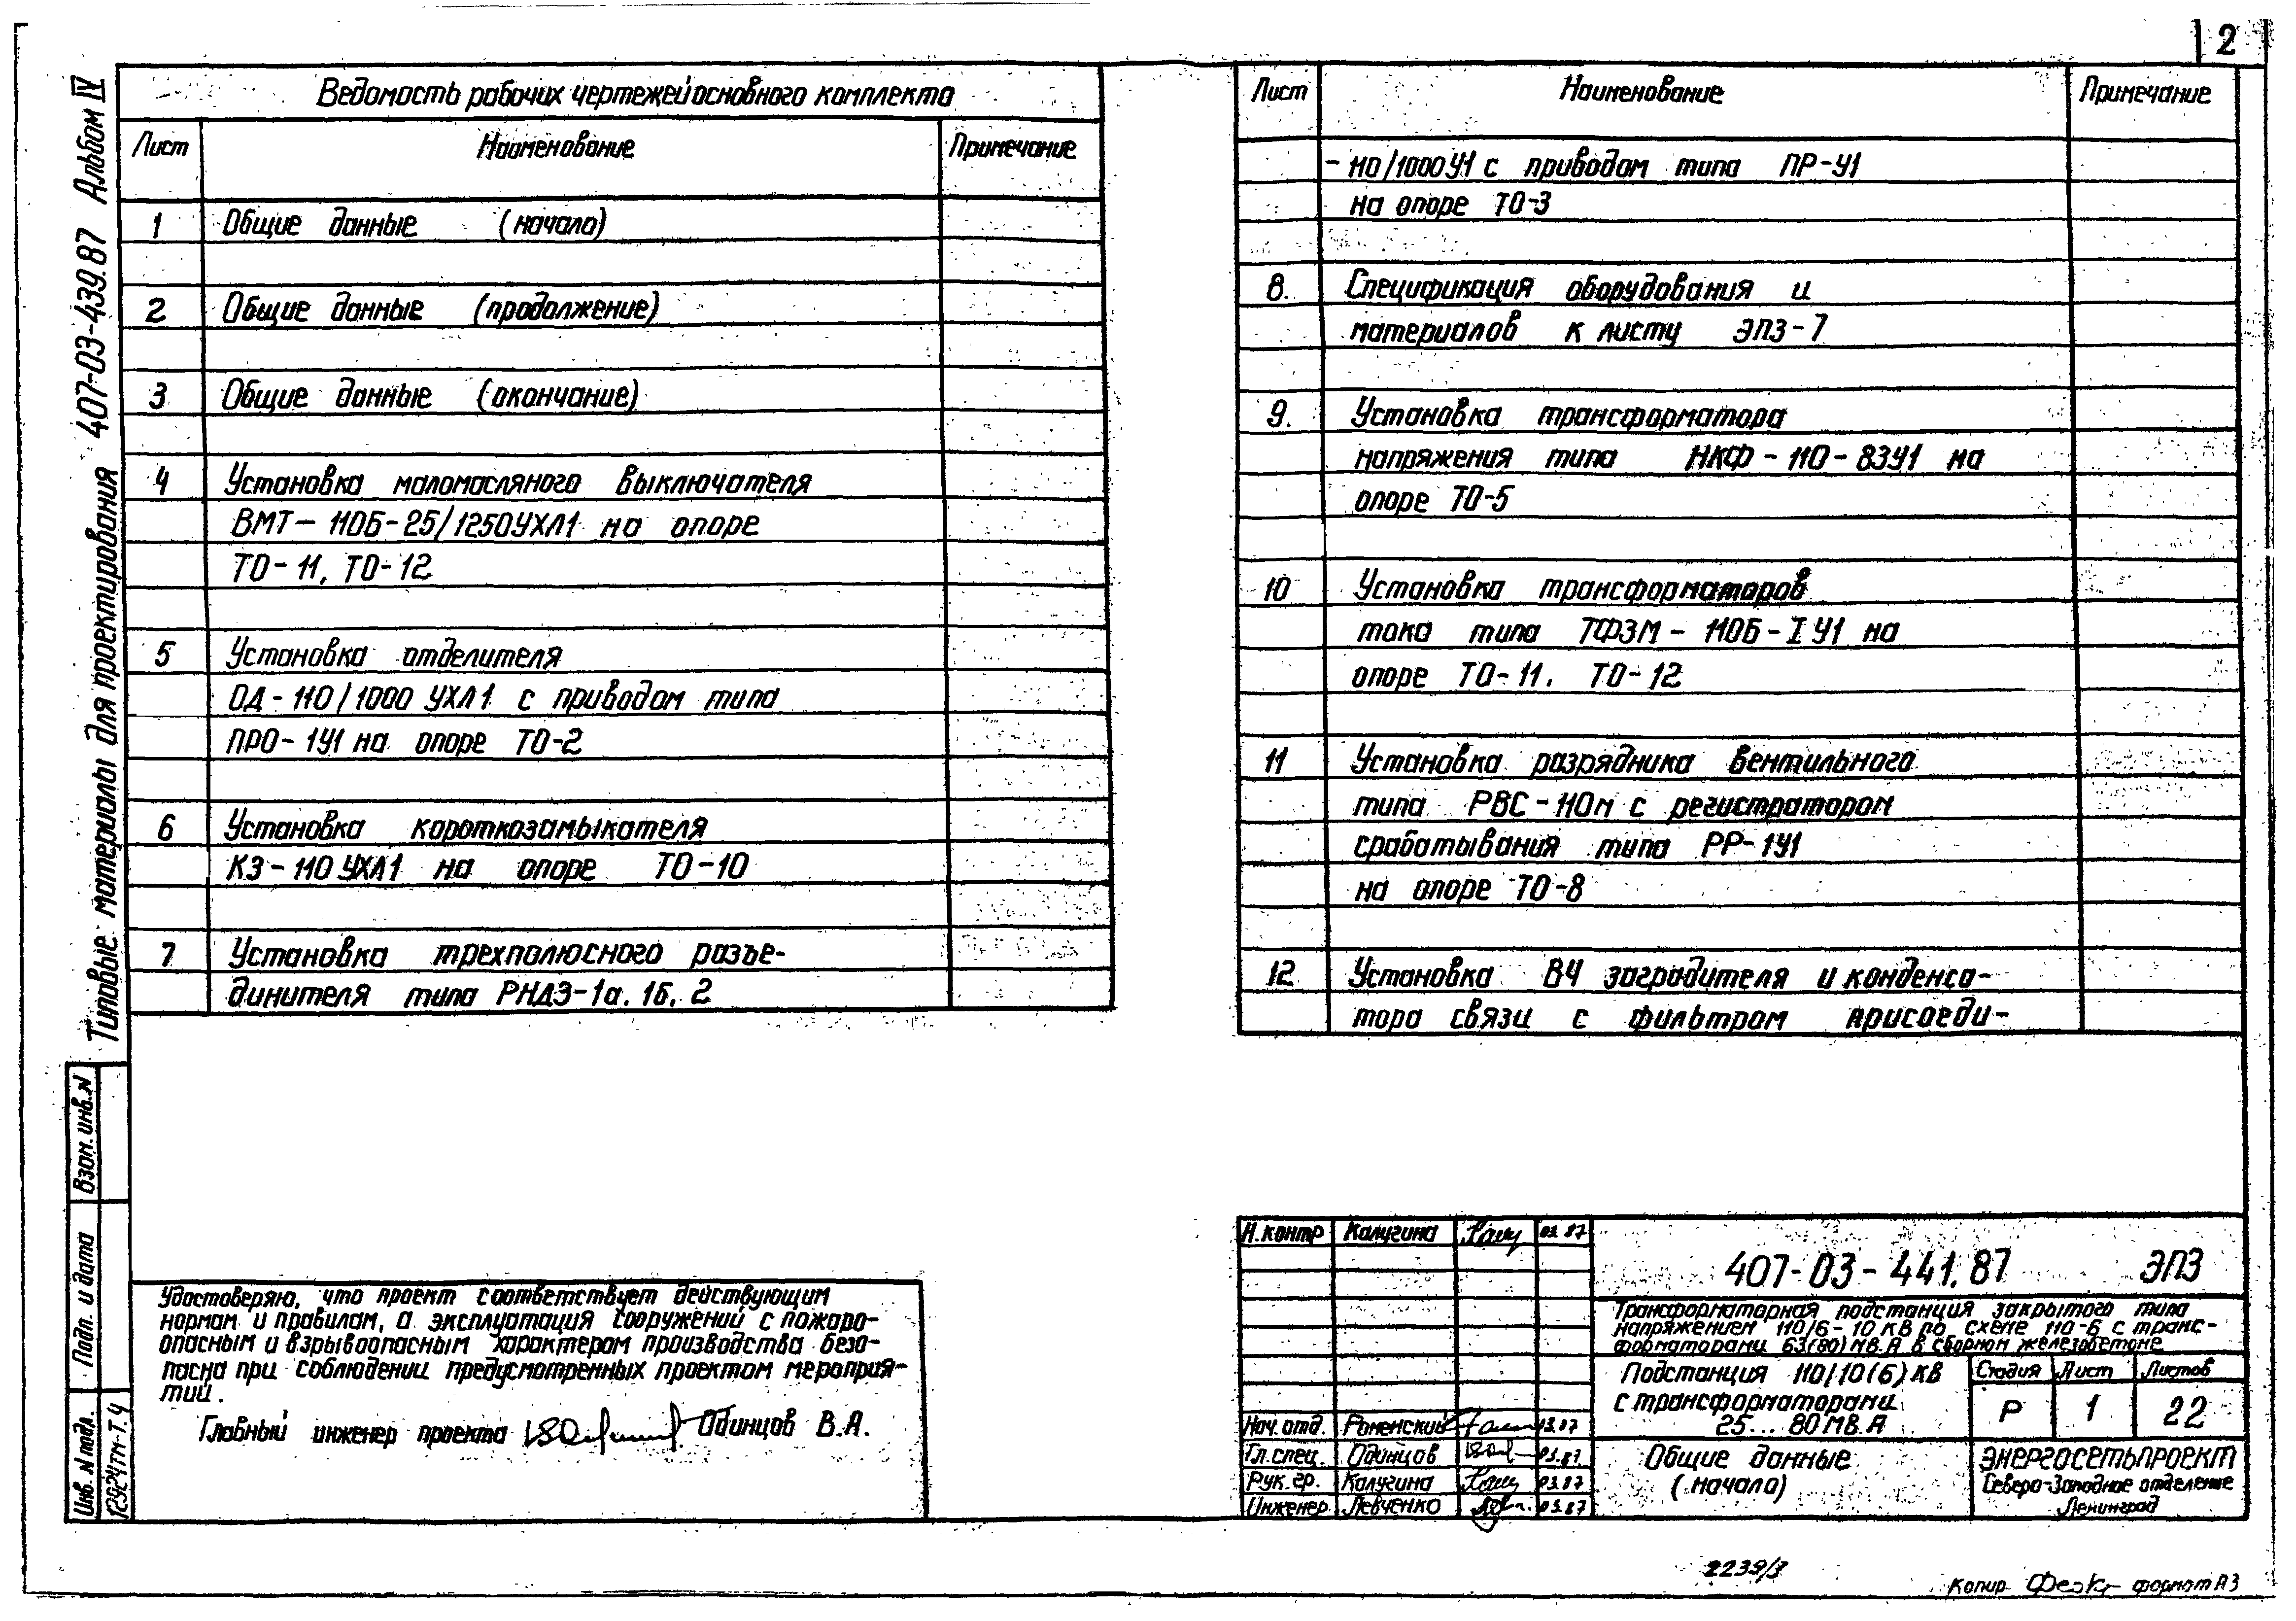 2
Типовые материалы для проектирования 407-03-439.87 Альбом IV
Ведомость рабочих чертежей основного комплекта
Лист Наименование Примечание
1 Общие данные (начало)
2 Общие данные (продолжение)
3 Общие данные (окончание)
4 Установка маломасляного выключателя
ВМТ-110Б-25/1250УХЛ1 на опоре
ТО-11, ТО-12
5 Установка отделителя
ОД-110/1000 УХЛ1 с приводом типа
ПРО-1У1 на опоре ТО-2
6 Установка короткозамыкателя
КЗ-110 УХЛ1 на опоре ТО-10
7 Установка трехполюсного разъе-
динителя типа РНДЗ-1а, 1б, 2
Лист Наименование Примечание
-110/1000У1 с приводом типа ПР-У1
на опоре ТО-3
8. Спецификация оборудования и
материалов к листу ЭП3-7
9. Установка трансформатора
напряжения типа НКФ-110-83У1 на
опоре ТО-5
10 Установка трансформаторов
тока типа ТФЗМ-110Б-I У1 на
опоре ТО-11. ТО-12
11 Установка разрядника вентильного
типа РВС-110м с регистратором
срабатывания типа РР-1У1
на опоре ТО-8
12 Установка ВЧ заградителя и конденса-
тора связи с фильтром присоеди-
Взам. инв. N
Подп. и дата
Инв. N подл.
12924тм-Т.4
Удостоверяю, что проект соответствует действующим
нормам и правилам, а эксплуатация сооружений с пожаро-
опасным и взрывоопасным характером производства безо-
пасна при соблюдении предусмотренных проектом мероприя-
тий.
Главный инженер проекта Одинцов В.А.
Н.контр Калугина 03.87
Нач.отд. Роменский 03.87
Гл.спец. Одинцов 03.87
Рук.гр. Калугина 03.87
Инженер Левченко 03.87
407-03-441.87 ЭП3
Трансформаторная подстанция закрытого типа
напряжением 110/6-10 кВ по схеме 110-6 с транс-
форматорами 63(80) МВ.А в сборном железобетоне
Подстанция 110/10(6) кВ
с трансформаторами
25...80 МВ.А
Стадия Лист Листов
Р 1 22
Общие данные
(начало)
ЭНЕРГОСЕТЬПРОЕКТ
Северо-Западное отделение
Ленинград
2239/3
Копир формат А3